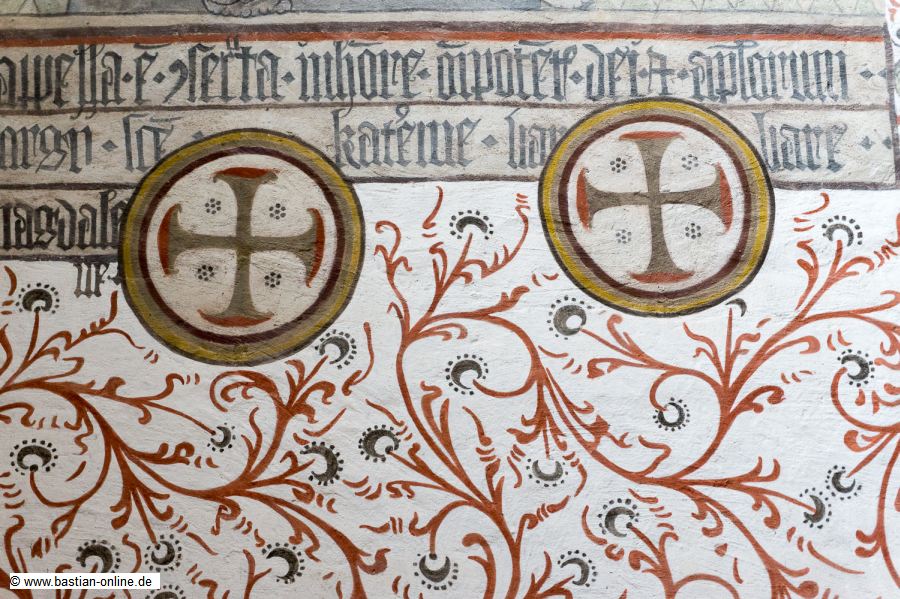 appella · ē · ꝯsecͬta · in · hōre · oīpotēt͛ · dei · ⁊ · apl̄orum · ·
orgy · scē · kateͬine · bar bare ·
magdale
ne
© www.bastian-online.de